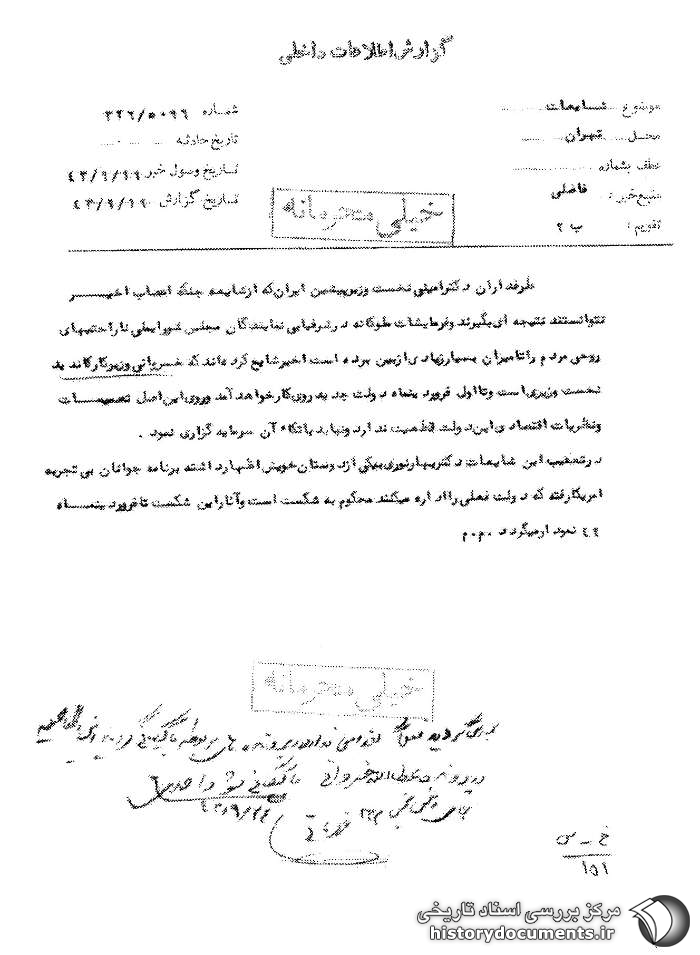 گزارش اطلاعات داخلی
موضوع شایعات
محل تهران
عطف بشماره
منبع خبر: فاضلی
تقویم: ب ۲
شماره ۳۲۶/۵۰۹۶
تاریخ حادثه
تاریخ وصول خبر ۴۳/۹/۱۹
تاریخ گزارش ۴۳/۹/۱۹
خیلی محرمانه
طرفداران دکتر امینی نخست وزیر پیشین ایران که از شایعه جنگ اعصاب اخیر
نتوانستند نتیجه ای بگیرند و فرمایشات ملوکانه در شرفیابی نمایندگان مجلس شورایملی ناراحتیهای
روحی مردم را تا میزان بسیار زیادی از بین برده است اخیر شایع کرده اند که خسروانی وزیر کار کاندید
نخست وزیری است و تا اول فروردینماه دولت جدید روی کار خواهد آمد و روی این اصل تصمیمات
و نظریات اقتصادی این دولت قطعیت ندارد و نباید با تکاء آن سرمایه گزاری نمود .
در تعقیب این شایعات دکتر بهار نوری بیکی از دوستان خویش اظهار داشته برنامه جوانان بی تجربه
امریکا رفته که دولت فعلی را اداره میکنند محکوم به شکست است و آثار این شکست تا فروردینماه
۴۴ نمودار میگردد م۰م۰
خیلی محرمانه
خ - س
۱۵۱
مرکز بررسی اسناد تاریخی
historydocuments.ir